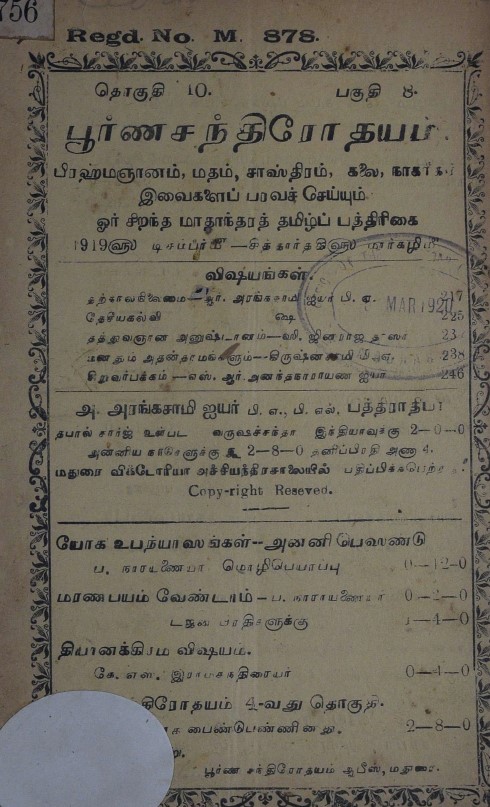 756
Regd. No. M. 878.
தொகுதி 10. பகுதி 8.
பூர்ணசந்திரோதயம்
பிரஹ்மஞானம், மதம், சாஸ்திரம், கலை,
இவைகளைப் பரவச் செய்யும்
ஓர் சிறந்த மாதாந்தரத் தமிழ்ப் பத்திரிகை
1919ளு டிசம்பர்மீ — சித்தார்த்திளு மார்கழிமீ
விஷயங்கள்.
தற்காலநிலைமை—ஆர். அரங்கசாமி ஐயர் பி. ஏ. 217
தேசியகல்வி ஷை 225
தத்துவஞான அனுஷ்டானம்—ஸி. ஜினராஜ தாஸா 23
மனதும் அதன்தாமங்களும்—கிருஷ்ணசாமி பி.ஏ. 238
சிறுவர்பக்கம் — எஸ். ஆர். அனந்தநாராயண ஐயர் 246
MAR 1920
அ. அரங்கசாமி ஐயர் பி. எ., பி. எல், பத்திராதிபர்
தபால் சார்ஜ் உள்பட வருஷச்சந்தா இந்தியாவுக்கு 2—0—0
அன்னிய நாடுகளுக்கு ரூ 2—8—0 தனிப்பிரதி அணா 4.
மதுரை விக்டோரியா அச்சியந்திரசாலையில் பதிப்பிக்கபெற்ற
Copy-right Reseved.
யோக உபந்யாஸங்கள்--அன்னி பெஸண்டு
ப. நாராயணையர் மொழிபெயர்ப்பு 0—12—0
மரணபயம் வேண்டாம் – ப. நாராயணையர் 0—2—0
டஜன் பிரதிகளுக்கு 1—4—0
தியானக்கிரம விஷயம்.
கே. எஸ். இராமசந்திரையர் 0—4—0
திரோதயம் 4-வது தொகுதி.
பைண்டுபண்ணினது. 2—8—0
து.
பூர்ண சந்திரோதயம் ஆபீஸ், மதுரை.